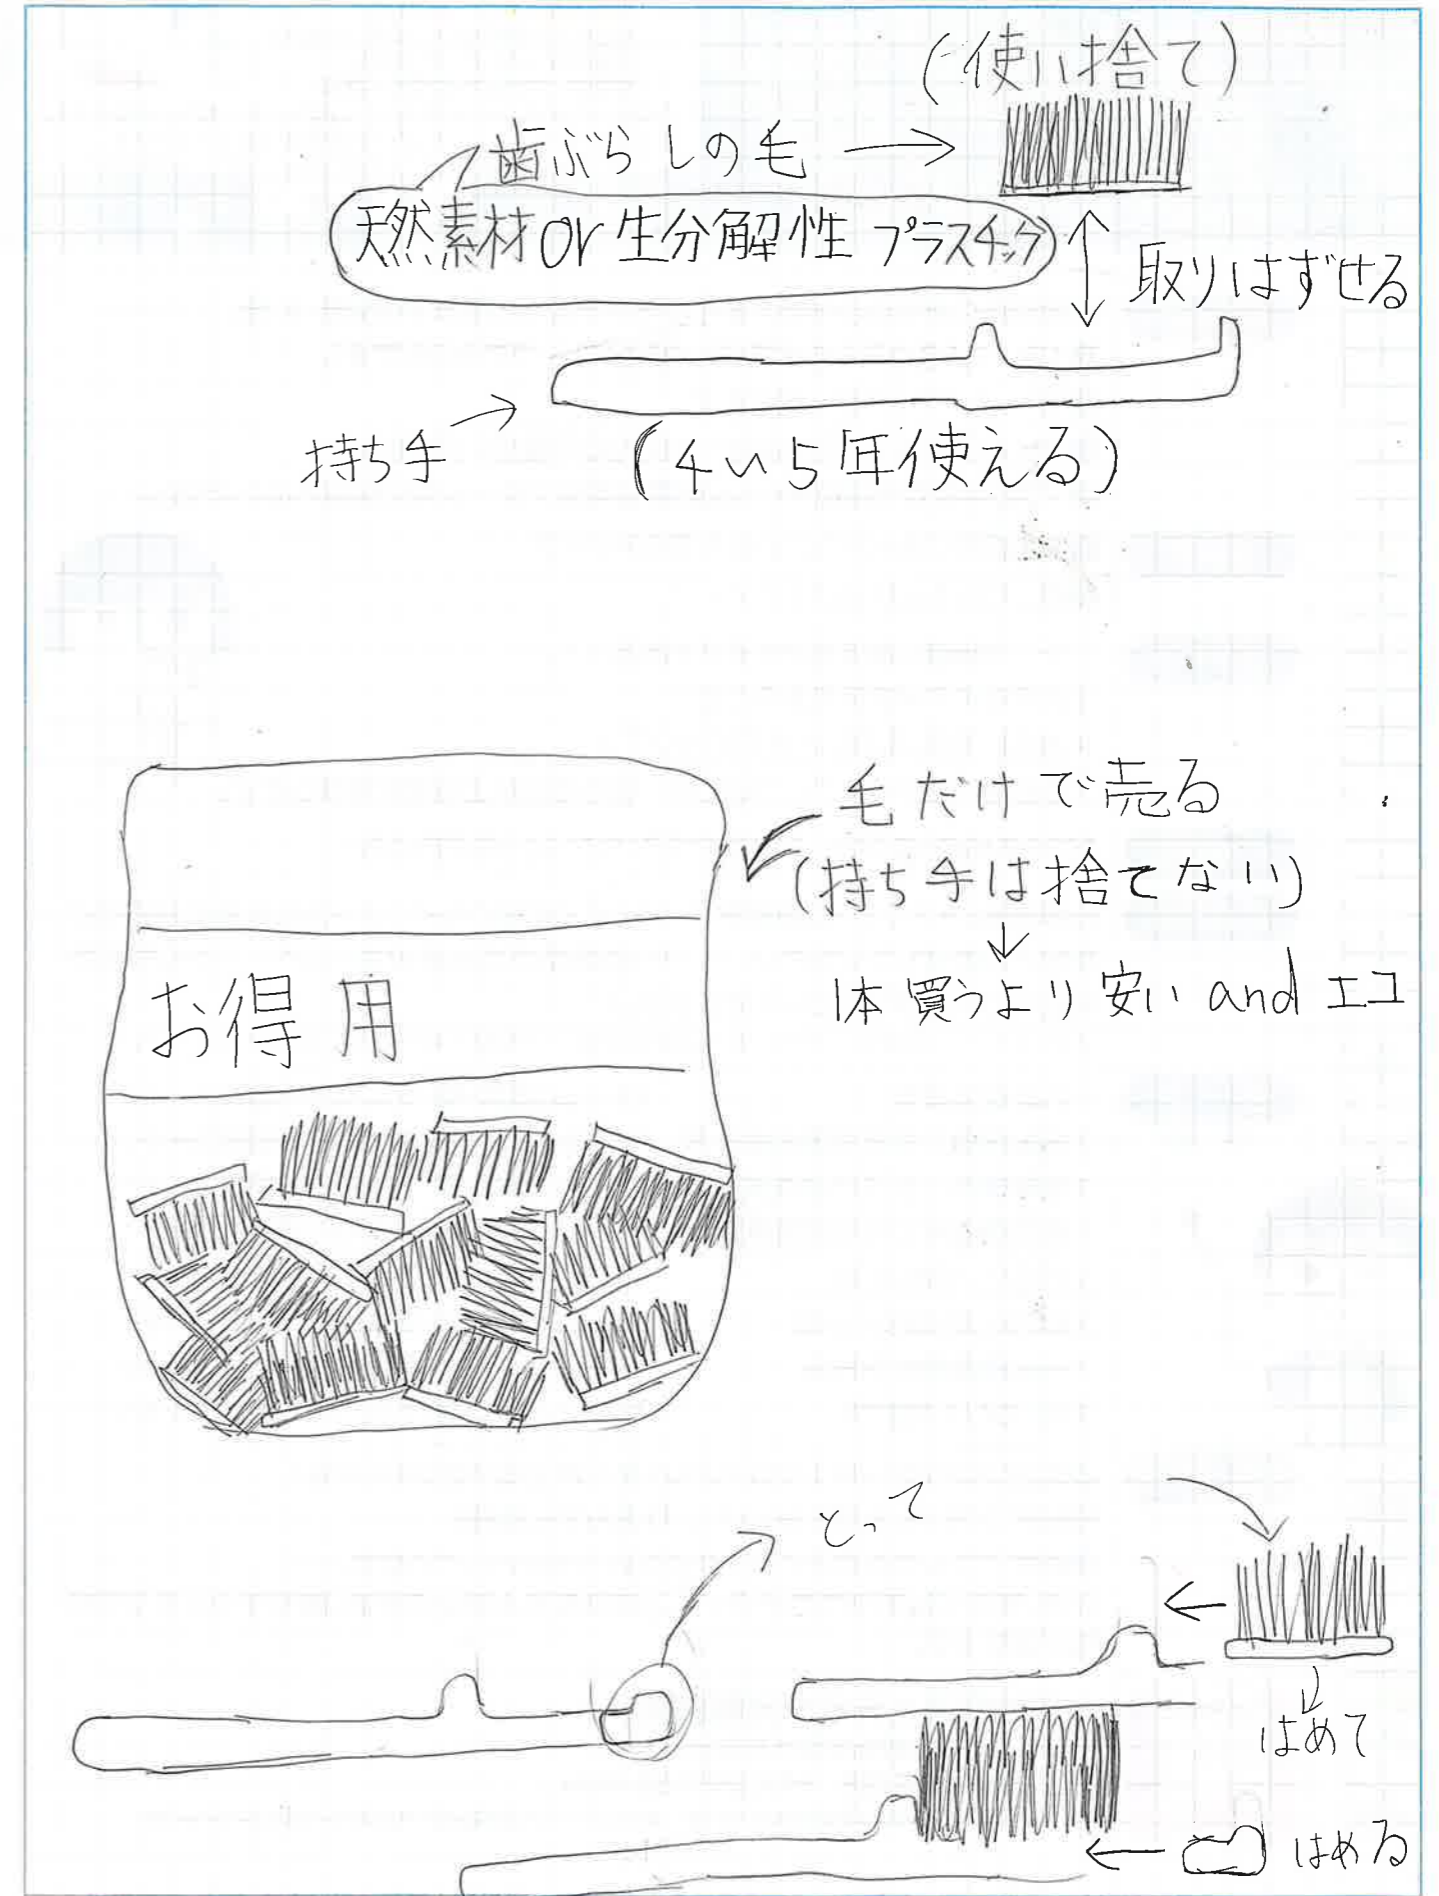 (使い捨て)
歯ぶらしの毛 →
天然素材or生分解性プラスチック
取りはずせる
持ち手
(4い5年使える)
毛だけで売る
(持ち手は捨てない)
↓
1本買うより安い and エコ
お得用
とって
はめて
はめる